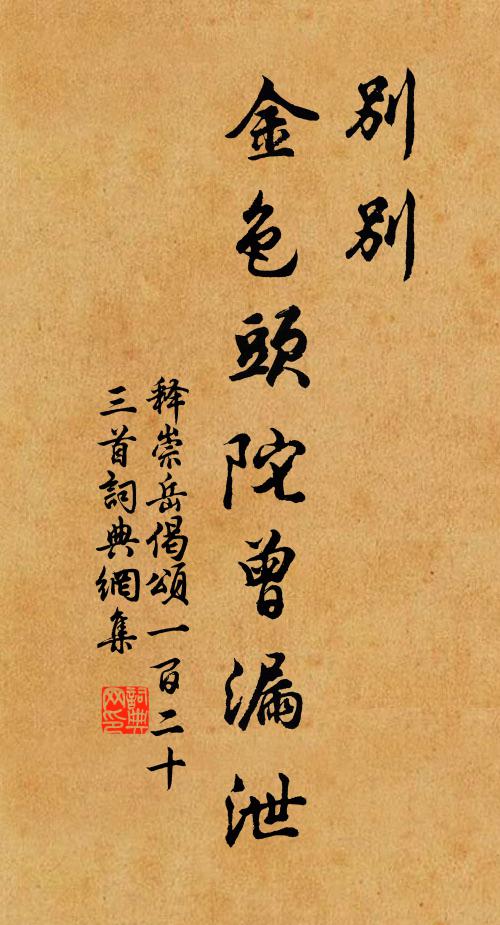 別別
金色頭陀曾漏泄
釋崇岳偈頌一百二十
三首詞典網集
詞典
网印